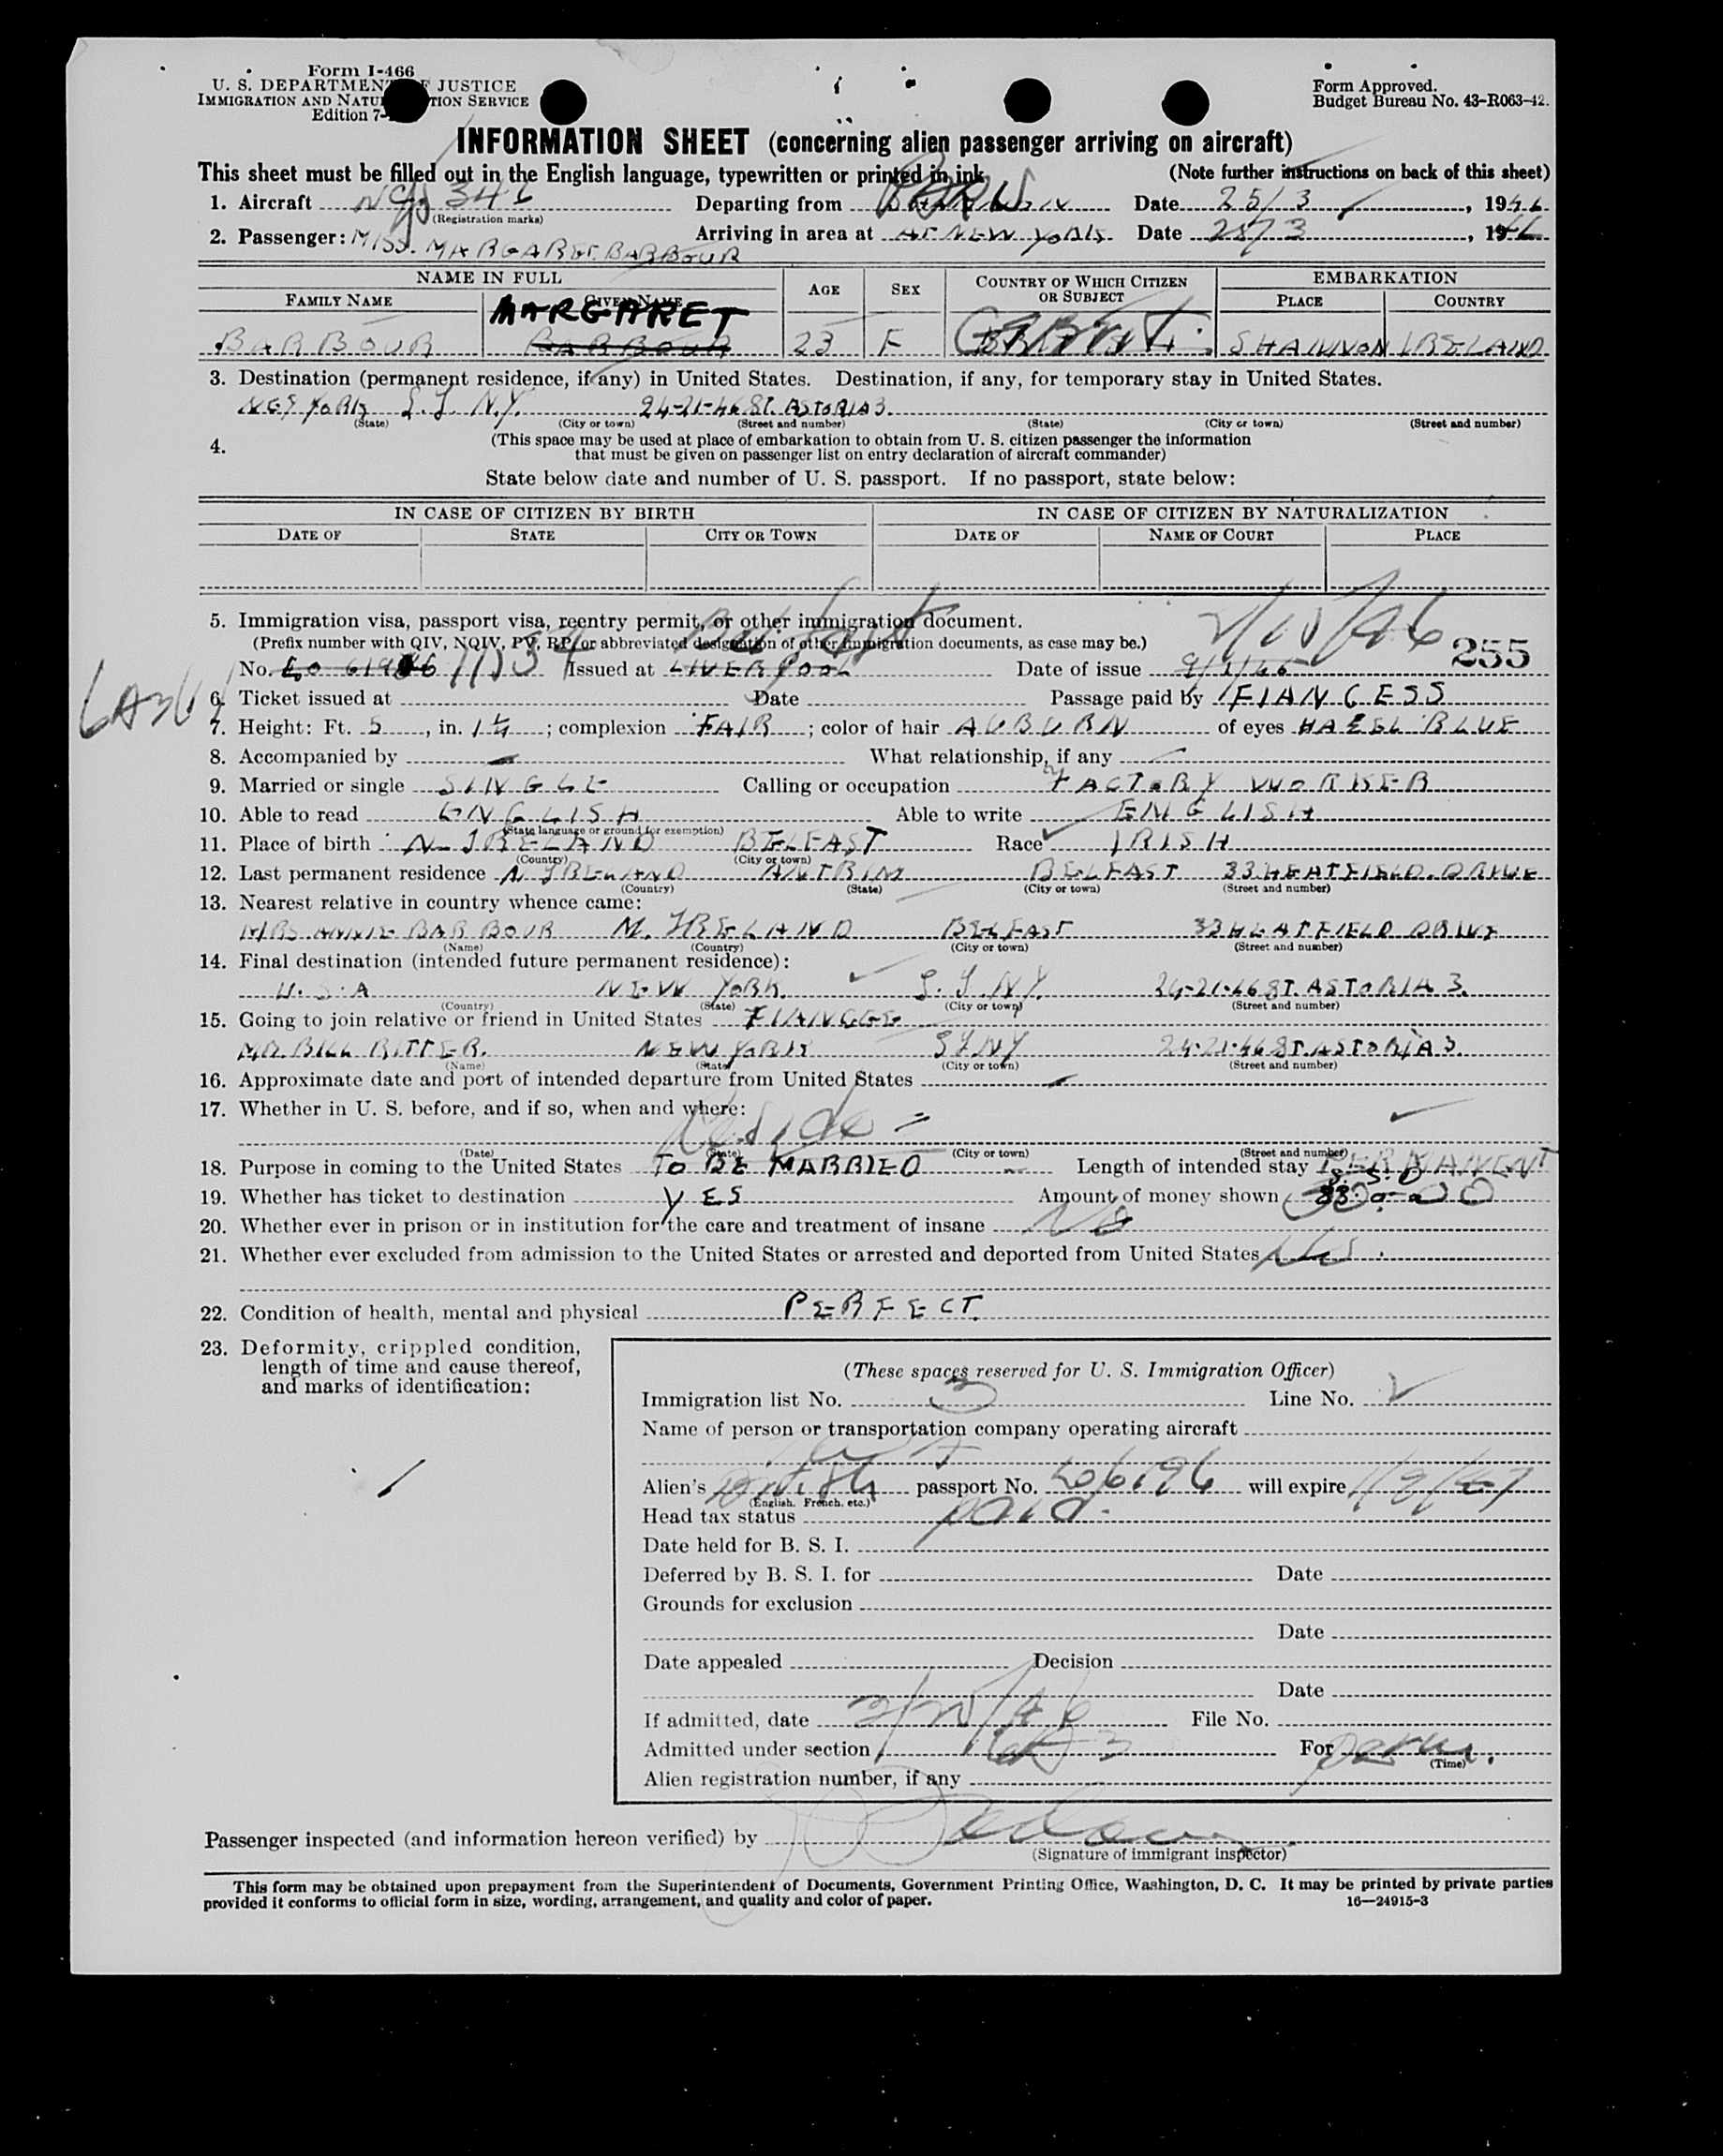 Form I-466
U. S. DEPARTMENT OF JUSTICE
IMMIGRATION AND NATURALIZATION SERVICE
Edition 7-
Form Approved.
Budget Bureau No. 43-R063-42.
INFORMATION SHEET (concerning alien passenger arriving on aircraft)
This sheet must be filled out in the English language, typewritten or printed in ink (Note further instructions on back of this sheet)
1. Aircraft (Registration marks) Departing from Date 25/3, 1946
2. Passenger: MISS. MARGARET BARBOUR Arriving in area at AT NEW YORK Date 25/3, 1946
NAME IN FULL AGE SEX COUNTRY OF WHICH CITIZEN OR SUBJECT EMBARKATION
FAMILY NAME GIVEN NAME PLACE COUNTRY
MARGARET
BARBOUR BARBOUR 23 F SHANNON IRELAND
3. Destination (permanent residence, if any) in United States. Destination, if any, for temporary stay in United States.
L.I. N.Y. 24-21-46 ST. ASTORIA 3.
(State) (City or town) (Street and number) (State) (City or town) (Street and number)
4. (This space may be used at place of embarkation to obtain from U. S. citizen passenger the information
that must be given on passenger list on entry declaration of aircraft commander)
State below date and number of U. S. passport. If no passport, state below:
IN CASE OF CITIZEN BY BIRTH IN CASE OF CITIZEN BY NATURALIZATION
DATE OF STATE CITY OR TOWN DATE OF NAME OF COURT PLACE
5. Immigration visa, passport visa, reentry permit, or other immigration document. Belfast
(Prefix number with QIV, NQIV, PV, RP, or abbreviated designation of other immigration documents, as case may be.) 255
No. Issued at LIVERPOOL Date of issue
6. Ticket issued at Date Passage paid by FIANCESS
7. Height: Ft. 5, in. ; complexion FAIR; color of hair AUBURN of eyes HAZEL BLUE
8. Accompanied by What relationship, if any
9. Married or single SINGLE Calling or occupation FACTORY WORKER
10. Able to read ENGLISH Able to write ENGLISH
(State language or ground for exemption)
11. Place of birth N. IRELAND BELFAST Race IRISH
(Country) (City or town)
12. Last permanent residence N IRELAND ANTRIM BELFAST 33 HEATFIELD DRIVE
(Country) (State) (City or town) (Street and number)
13. Nearest relative in country whence came:
MRS ANNIE BARBOUR N. IRELAND BELFAST 33 HEATFIELD DRIVE
(Name) (Country) (City or town) (Street and number)
14. Final destination (intended future permanent residence):
U.S.A NEW YORK. L.I.NY. 24-21-46 ST. ASTORIA 3.
(Country) (State) (City or town) (Street and number)
15. Going to join relative or friend in United States FIANCEE
MR BILL RITTER. NEW YORK LINY 24-21-46 ST. ASTORIA 3.
(Name) (State) (City or town) (Street and number)
16. Approximate date and port of intended departure from United States
17. Whether in U. S. before, and if so, when and where:
reside
(Date) (State) (City or town) (Street and number)
18. Purpose in coming to the United States TO BE MARRIED Length of intended stay PERMANENT
19. Whether has ticket to destination YES Amount of money shown
20. Whether ever in prison or in institution for the care and treatment of insane No
21. Whether ever excluded from admission to the United States or arrested and deported from United States
22. Condition of health, mental and physical PERFECT.
23. Deformity, crippled condition,
length of time and cause thereof,
and marks of identification:
(These spaces reserved for U. S. Immigration Officer)
Immigration list No. 3 Line No. 2
Name of person or transportation company operating aircraft
Alien's British passport No. will expire
(English. French. etc.)
Head tax status paid
Date held for B. S. I.
Deferred by B. S. I. for Date
Grounds for exclusion
Date
Date appealed Decision
Date
If admitted, date 3/25/46 File No.
Admitted under section For perm.
(Time)
Alien registration number, if any
Passenger inspected (and information hereon verified) by
(Signature of immigrant inspector)
This form may be obtained upon prepayment from the Superintendent of Documents, Government Printing Office, Washington, D. C. It may be printed by private parties
provided it conforms to official form in size, wording, arrangement, and quality and color of paper. 16—24915-3